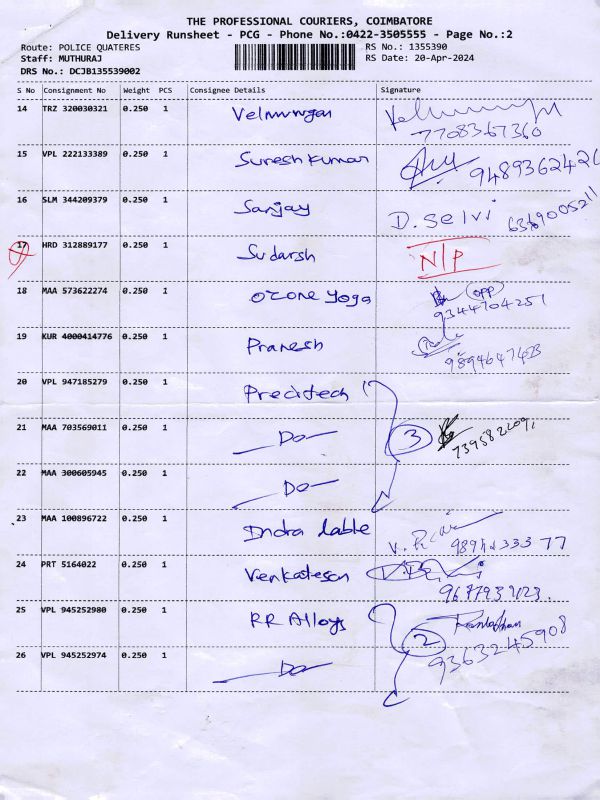 THE PROFESSIONAL COURIERS, COIMBATORE
Delivery Runsheet - PCG - Phone No.:0422-3505555 - Page No.:2
Route: POLICE QUATERES RS No.: 1355390
Staff: MUTHURAJ RS Date: 20-Apr-2024
DRS No.: DCJB135539002
S No Consignment No Weight PCS Consignee Details Signature
14 TRZ 320030321 0.250 1 Velmurugan
7708367360
15 VPL 222133389 0.250 1 Sureshkumar 9489362426
16 SLM 344209379 0.250 1 Sanjay D. Selvi 6369005211
17 HRD 312889177 0.250 1 Sudarsh N/P
18 MAA 573622274 0.250 1 Ozone Yoga opp
9344704251
19 KUR 4000414776 0.250 1 Pranesh
9894647423
20 VPL 947185279 0.250 1 Precitech
21 MAA 703569011 0.250 1 Do 3
22 MAA 300605945 0.250 1 Do
23 MAA 100896722 0.250 1 Indra lable
24 PRT 5164022 0.250 1 Venkatesan
25 VPL 945252980 0.250 1 RR Alloys 2
26 VPL 945252974 0.250 1 Do 9363245908